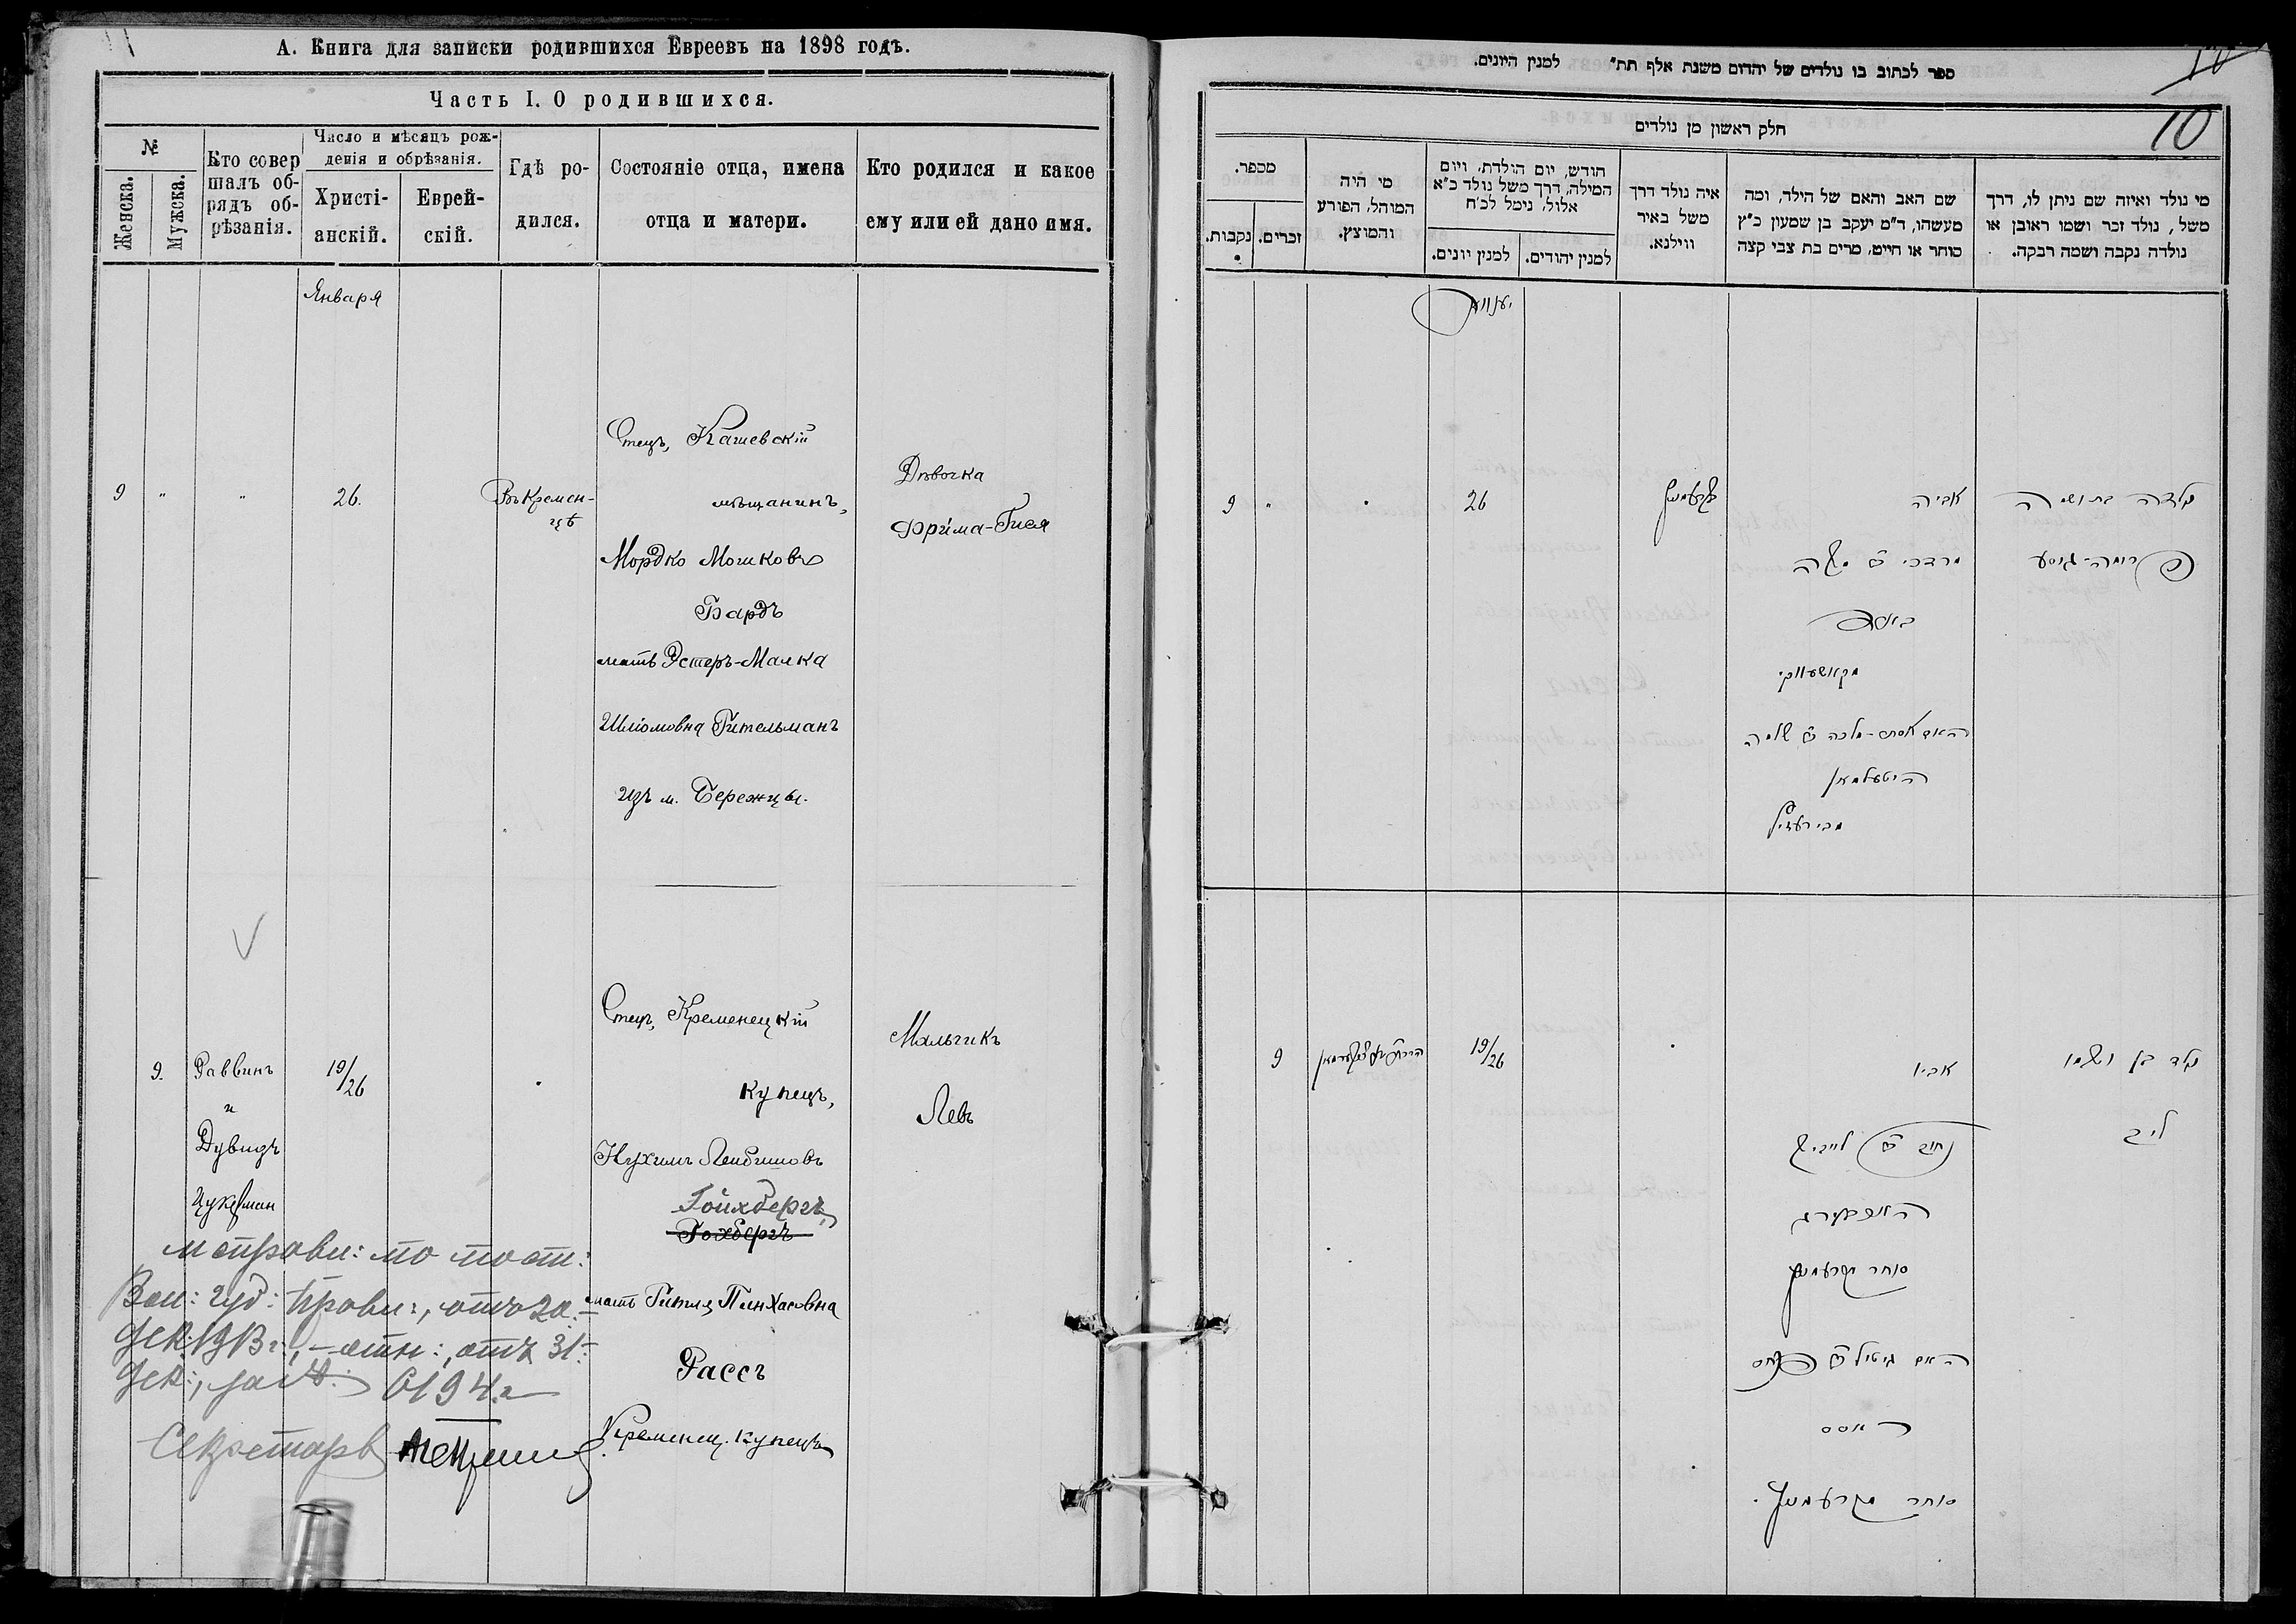 А. Книга для записки родившихся Евреевъ на 1898 годъ.
Часть I. О родившихся.
№
Женска.
Мужска.
Кто совер
шалъ об-
рядъ об-
рѣзанія.
Число и мѣсяцъ рож-
денія и обрѣзанія.
Христі-
анскій.
Еврей-
скій.
Гдѣ ро-
дился.
Состояніе отца, имена
отца и матери.
Кто родился и какое
ему или ей дано имя.
Января
9 " " 26.
Въ Кремен-
цѣ
Отецъ, Кашевскій
мѣщанинъ,
Мордко Мошковъ
Бардъ
мать Эстеръ-Малка
Шліомовна Гительманъ
изъ м. Бережцы.
Дѣвочка
Фрима-Гися
9.
Раввинъ
и
Дувидъ
Цукерман
19/26
Отецъ, Кременецкій
купецъ,
Нухимъ Лейбишовъ
Гойхбергъ
Гохбергъ
мать Гитля Пинхасовна
Рассъ
Кременец. купецъ
Мальчикъ
Левъ
исправи: по пост:
Вол: губ: Правл:, отъ 20
Дек: 1913 г:, – отн:, отъ 31
Дек:, за №: 6194.
Секретарь
ספר לכתוב בו נולדים של יהדום משנת אלף תת״ למנין היונים.
10
10
חלק ראשון מן נולדים
מספר.
נקבות.
זכרים.
מי היה
המוהל, הפורע
והמוצץ.
חודש, יום הולדת, ויום
המילה, דרך משל נולד כ״א
אלול, נימל לכ״ח
למנין יונים.
למנין יהודים.
איה נולד דרך
משל באיר
ווילנא.
שם האב והאם של הילד, ומה
מעשהו, ד״מ יעקב בן שמעון כ״ץ
סוחר או חייט, מרים בת צבי קצה
מי נולד ואיזה שם ניתן לו, דרך
משל, נולד זכר ושמו ראובן או
נולדה נקבה ושמה רבקה.
יענווער
9 " 26
קרעמניץ
אביה
מרדכי ב״ר משה
בארד
מקאשעווקי
האם אסתר-מלכה ב״ר שלמה
היטעלמאן
נולדה בת ושמה
פרומה-גיסע
9
19/26
אביו
נחום ב״ר לייביש
האכבערג
סוחר מקרעמניץ
האם גיטיל ב״ר פנחס
ראסס
סוחר מקרעמניץ.
נולד בן ושמו
ליב